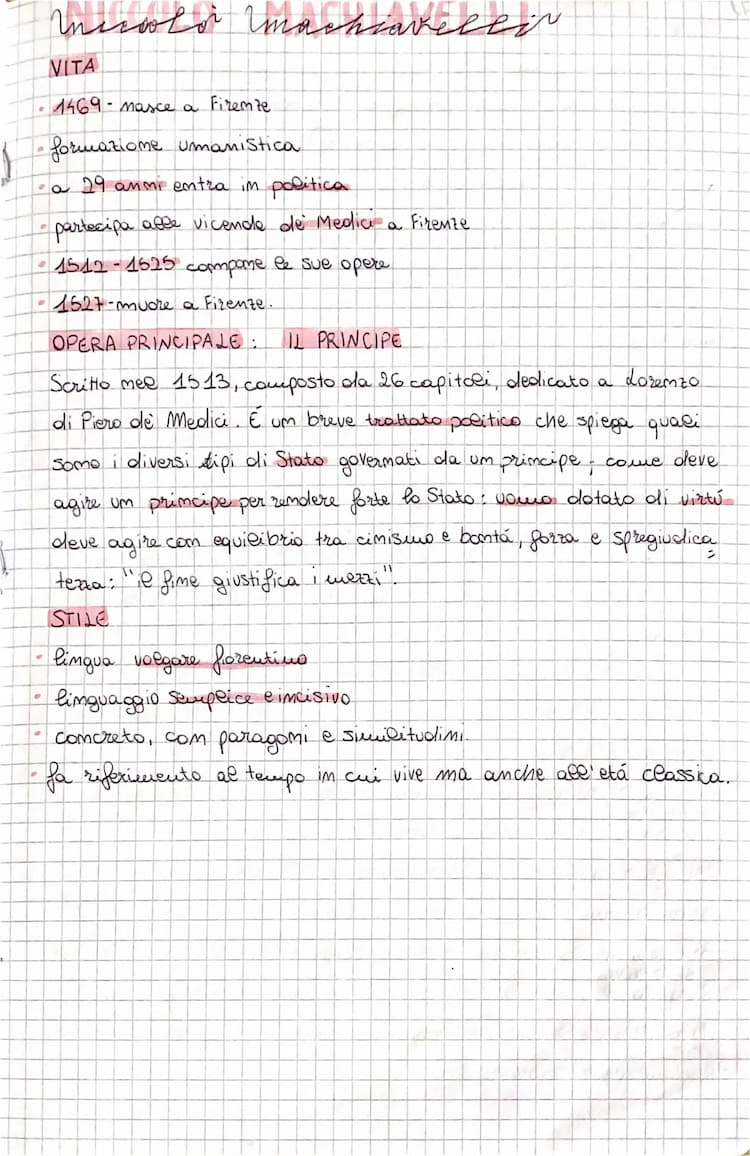 Niccolò Machiavelli
VITA
• 1469 - nasce a Firenze
• formazione umanistica
• a 29 anni entra in politica
• partecipa alle vicende dè Medici a Firenze
• 1512 - 1525 compone le sue opere
• 1527 - muore a Firenze.
OPERA PRINCIPALE : IL PRINCIPE
Scritto nel 1513, composto da 26 capitoli, dedicato a Lorenzo
di Piero dè Medici. É un breve trattato politico che spiega quali
sono i diversi tipi di Stato governati da un principe; come deve
agire un principe per rendere forte lo Stato: uomo dotato di virtú
deve agire con equilibrio tra cinismo e bontá, forza e spregiudica=
tezza: "il fine giustifica i mezzi".
STILE
• lingua volgare fiorentino
• linguaggio semplice e incisivo
• concreto, con paragoni e similitudini
• fa riferimento al tempo in cui vive ma anche all'etá classica.